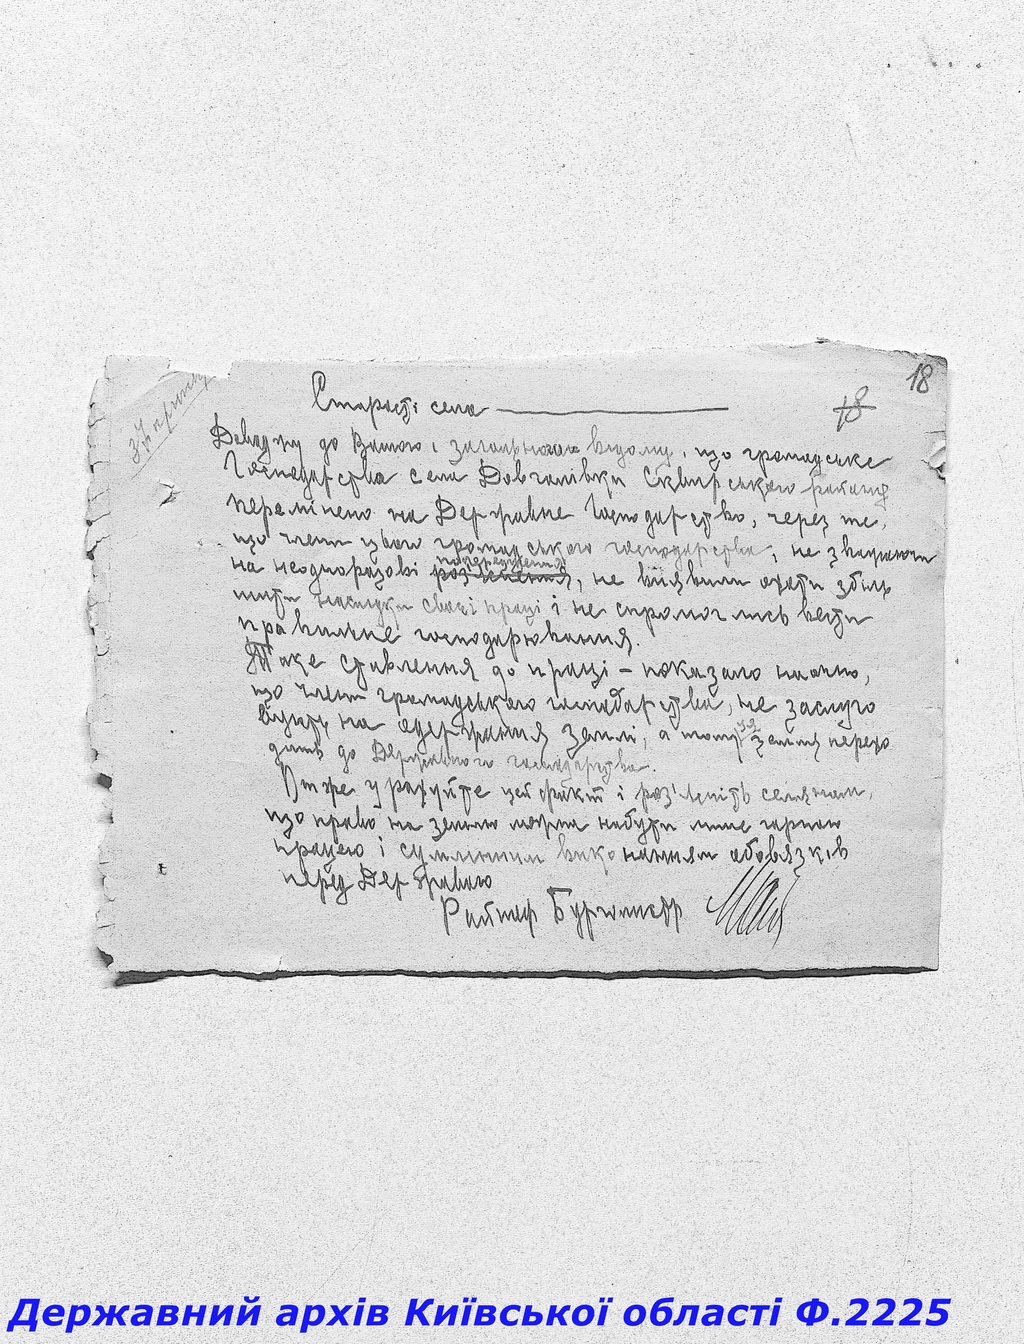 18
18
Старості села
Доводжу до Вашого і загального відому, що громадське
Господарство села Довгалівки Сквирського району
перемінено на Державне Господарство, через те,
що члени цього громадського господарства, не зважаючи
на неодноразові попередження, не виявили охоти збіль
шити наслідки своєї праці і не спромоглись вести
правильне господарювання.
Таке ставлення до праці – показало наочно,
що члени громадського господарства, не заслуго
вують на одержання землі, а тому ця земля перехо
дить до Державного господарства.
Отже урахуйте цей факт і роз'ясніть селянам,
що право на землю можна набути лише гарною
працею і сумлінним виконанням обовязків
перед Державою
Райшеф Бургомістр
Державний архів Київської області Ф.2225